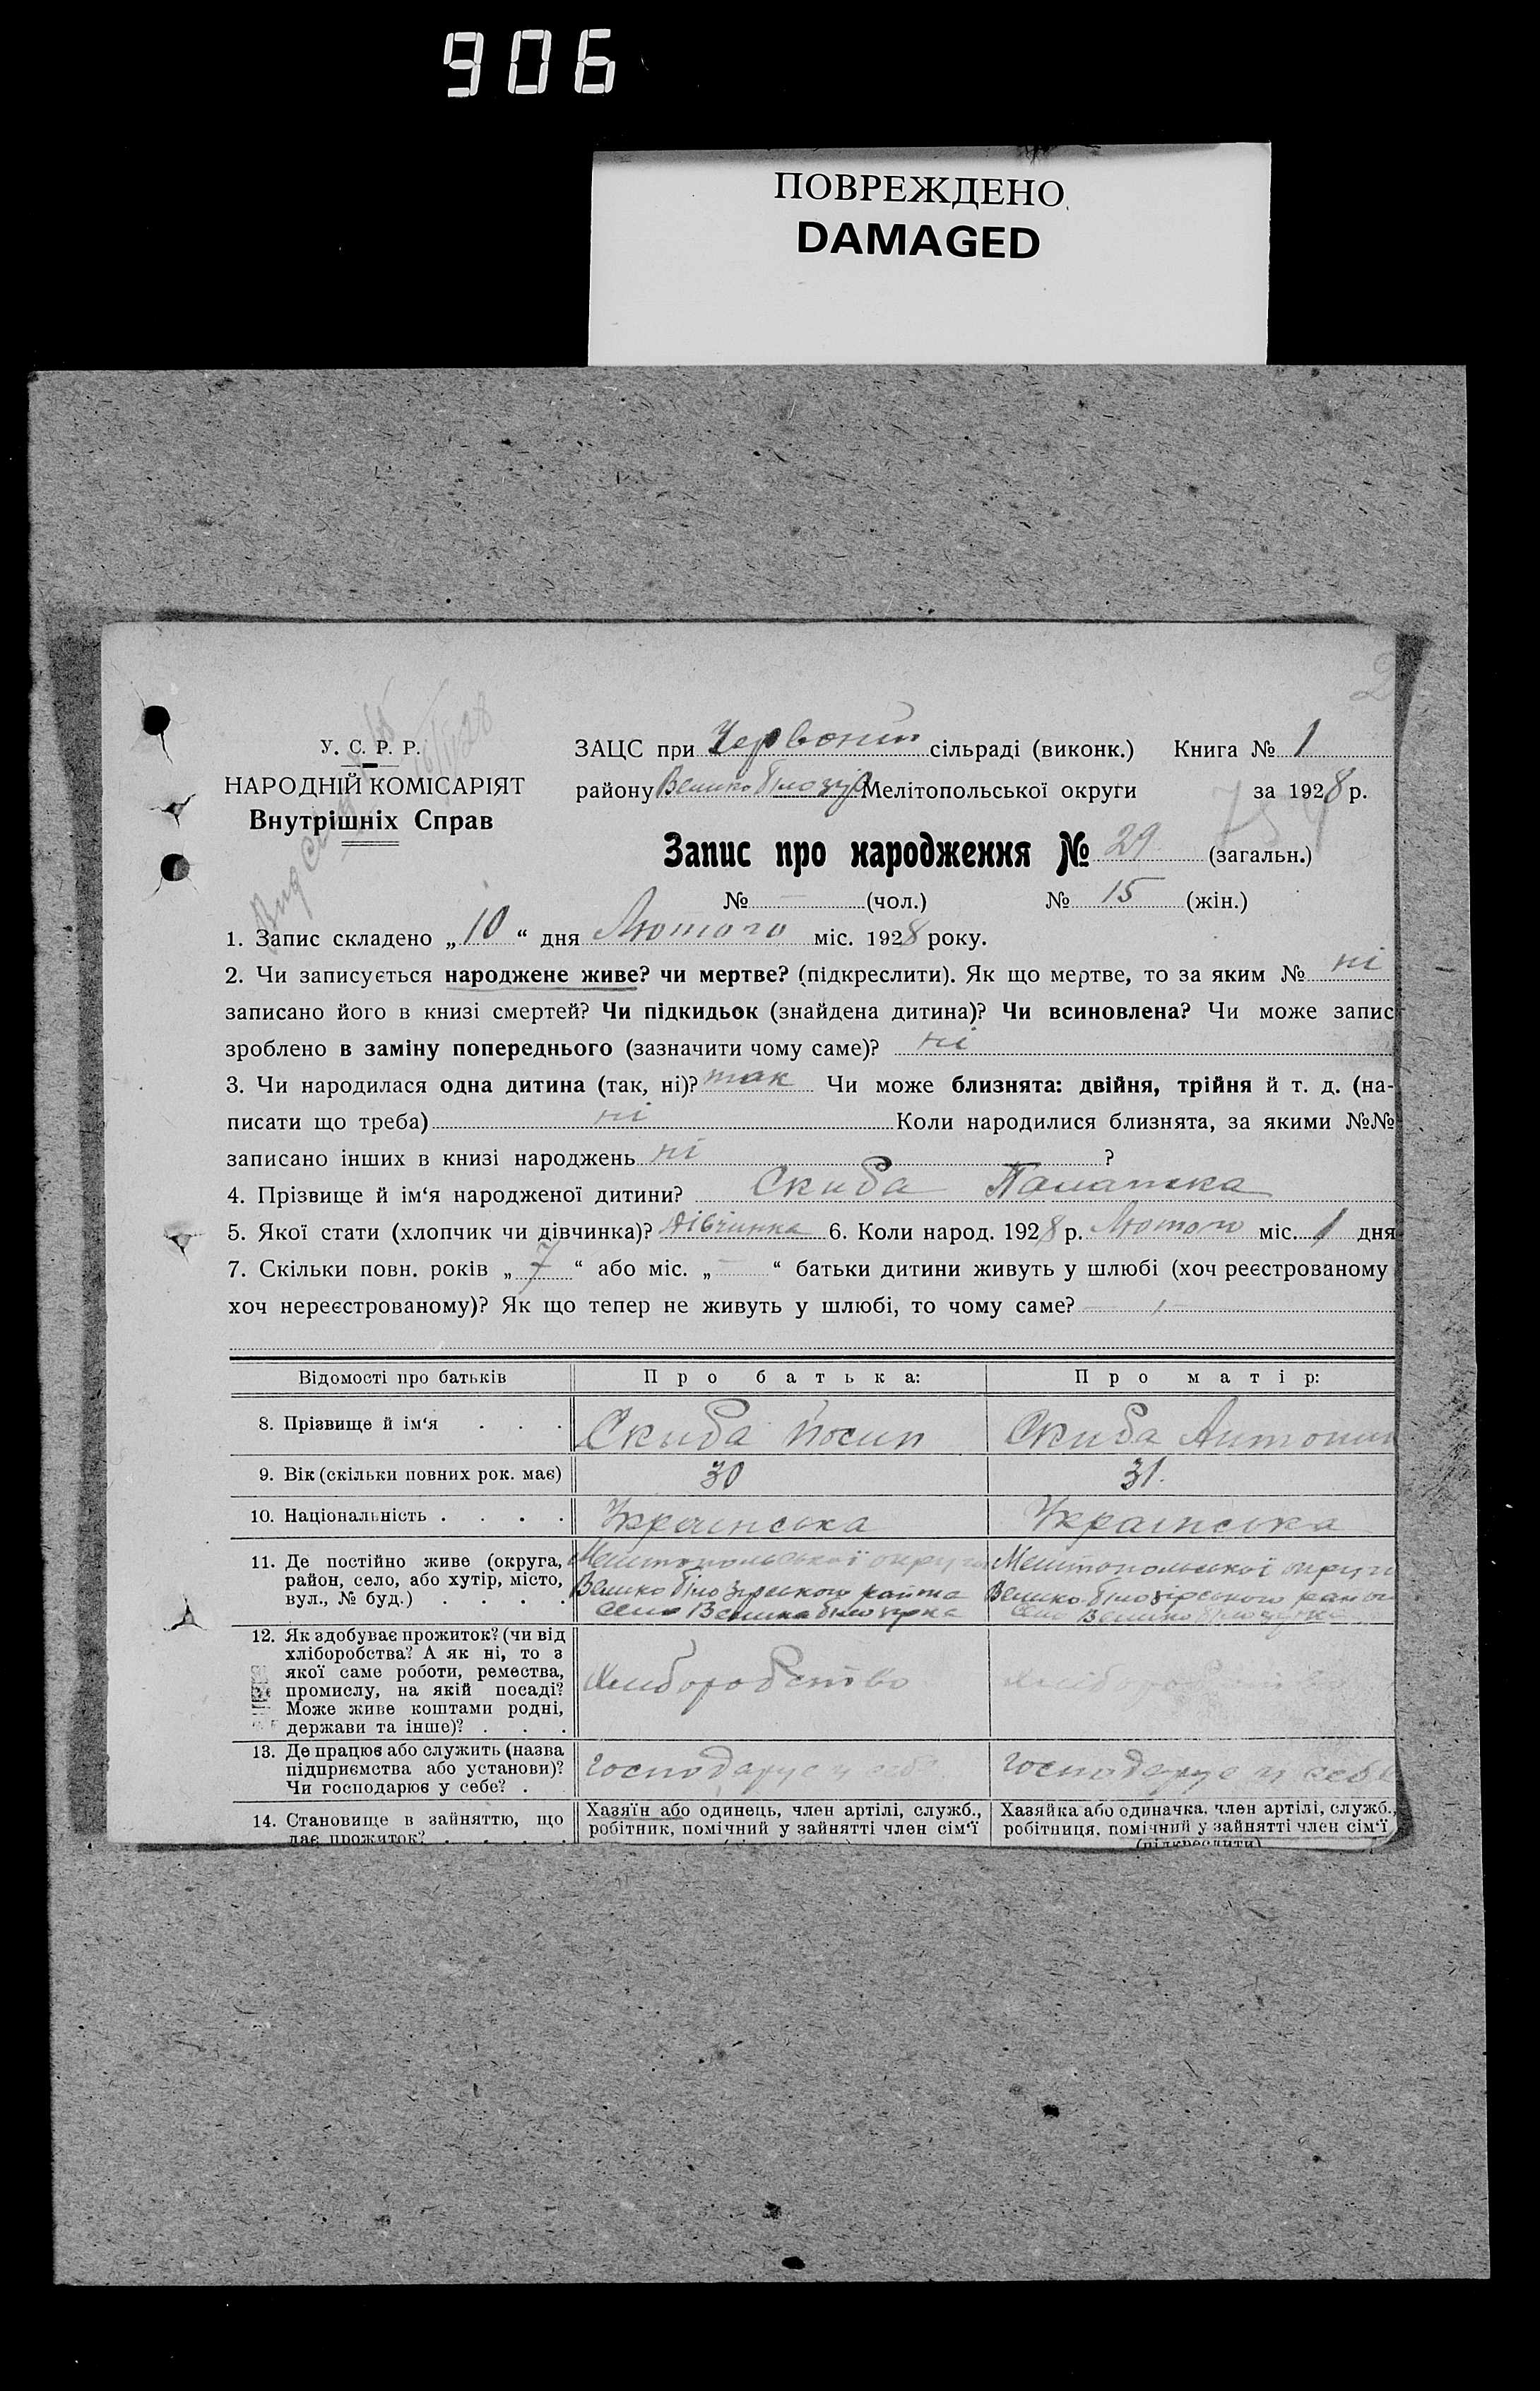 906
ПОВРЕЖДЕНО
DAMAGED
У. С. Р. Р.
НАРОДНІЙ КОМІСАРІЯТ
Внутрішніх Справ
ЗАЦС при Червоній сільраді (виконк.) Книга № 1
району Велико Білозір Мелітопольської округи за 1928 р.
Запис про народження № 29 (загальн.)
№ — (чол.) № 15 (жін.)
1. Запис складено „ 10 “ дня Лютого міс. 1928 року.
2. Чи записується народжене живе? чи мертве? (підкреслити). Як що мертве, то за яким № ні
записано його в книзі смертей? Чи підкидьок (знайдена дитина)? Чи всиновлена? Чи може запис
зроблено в заміну попереднього (зазначити чому саме)? ні
3. Чи народилася одна дитина (так, ні)? так Чи може близнята: двійня, трійня й т. д. (на-
писати що треба) ні Коли народилися близнята, за якими №№
записано інших в книзі народжень ні ?
4. Прізвище й ім‘я народженої дитини? Скиба Палашка
5. Якої стати (хлопчик чи дівчинка)? Дівчинка 6. Коли народ. 1928 р. Лютого міс. 1 дня
7. Скільки повн. років „ 7 “ або міс. „ — “ батьки дитини живуть у шлюбі (хоч реєстрованому
хоч нереєстрованому)? Як що тепер не живуть у шлюбі, то чому саме? —
Відомості про батьків Про батька: Про матір:
8. Прізвище й ім‘я . . . Скиба Йосип Скиба Антонин
9. Вік (скільки повних рок. має) 30 31.
10. Національність . . . . Українська Українська
11. Де постійно живе (округа,
район, село, або хутір, місто,
вул., № буд.) . . . .
Мелитопольської округи
Велико Білозірського района
село Велика білозірка
Мелитопольської округи
Велико білозірського район
село Велико білозірка
12. Як здобуває прожиток? (чи від
хліборобства? А як ні, то з
якої саме роботи, ремества,
промислу, на якій посаді?
Може живе коштами родні,
держави та інше)? . . .
Хліборобство
Хліборобство
13. Де працює або служить (назва
підприємства або установи)?
Чи господарює у себе? .
Господарує у себе
Господарує у себе
14. Становище в зайняттю, що
дає прожиток? . . . .
Хазяїн або одинець, член артілі, служб.,
робітник, помічний у зайнятті член сім‘ї
Хазяйка або одиначка, член артілі, служб.,
робітниця, помічний у зайнятті член сім‘ї
(підкреслити)